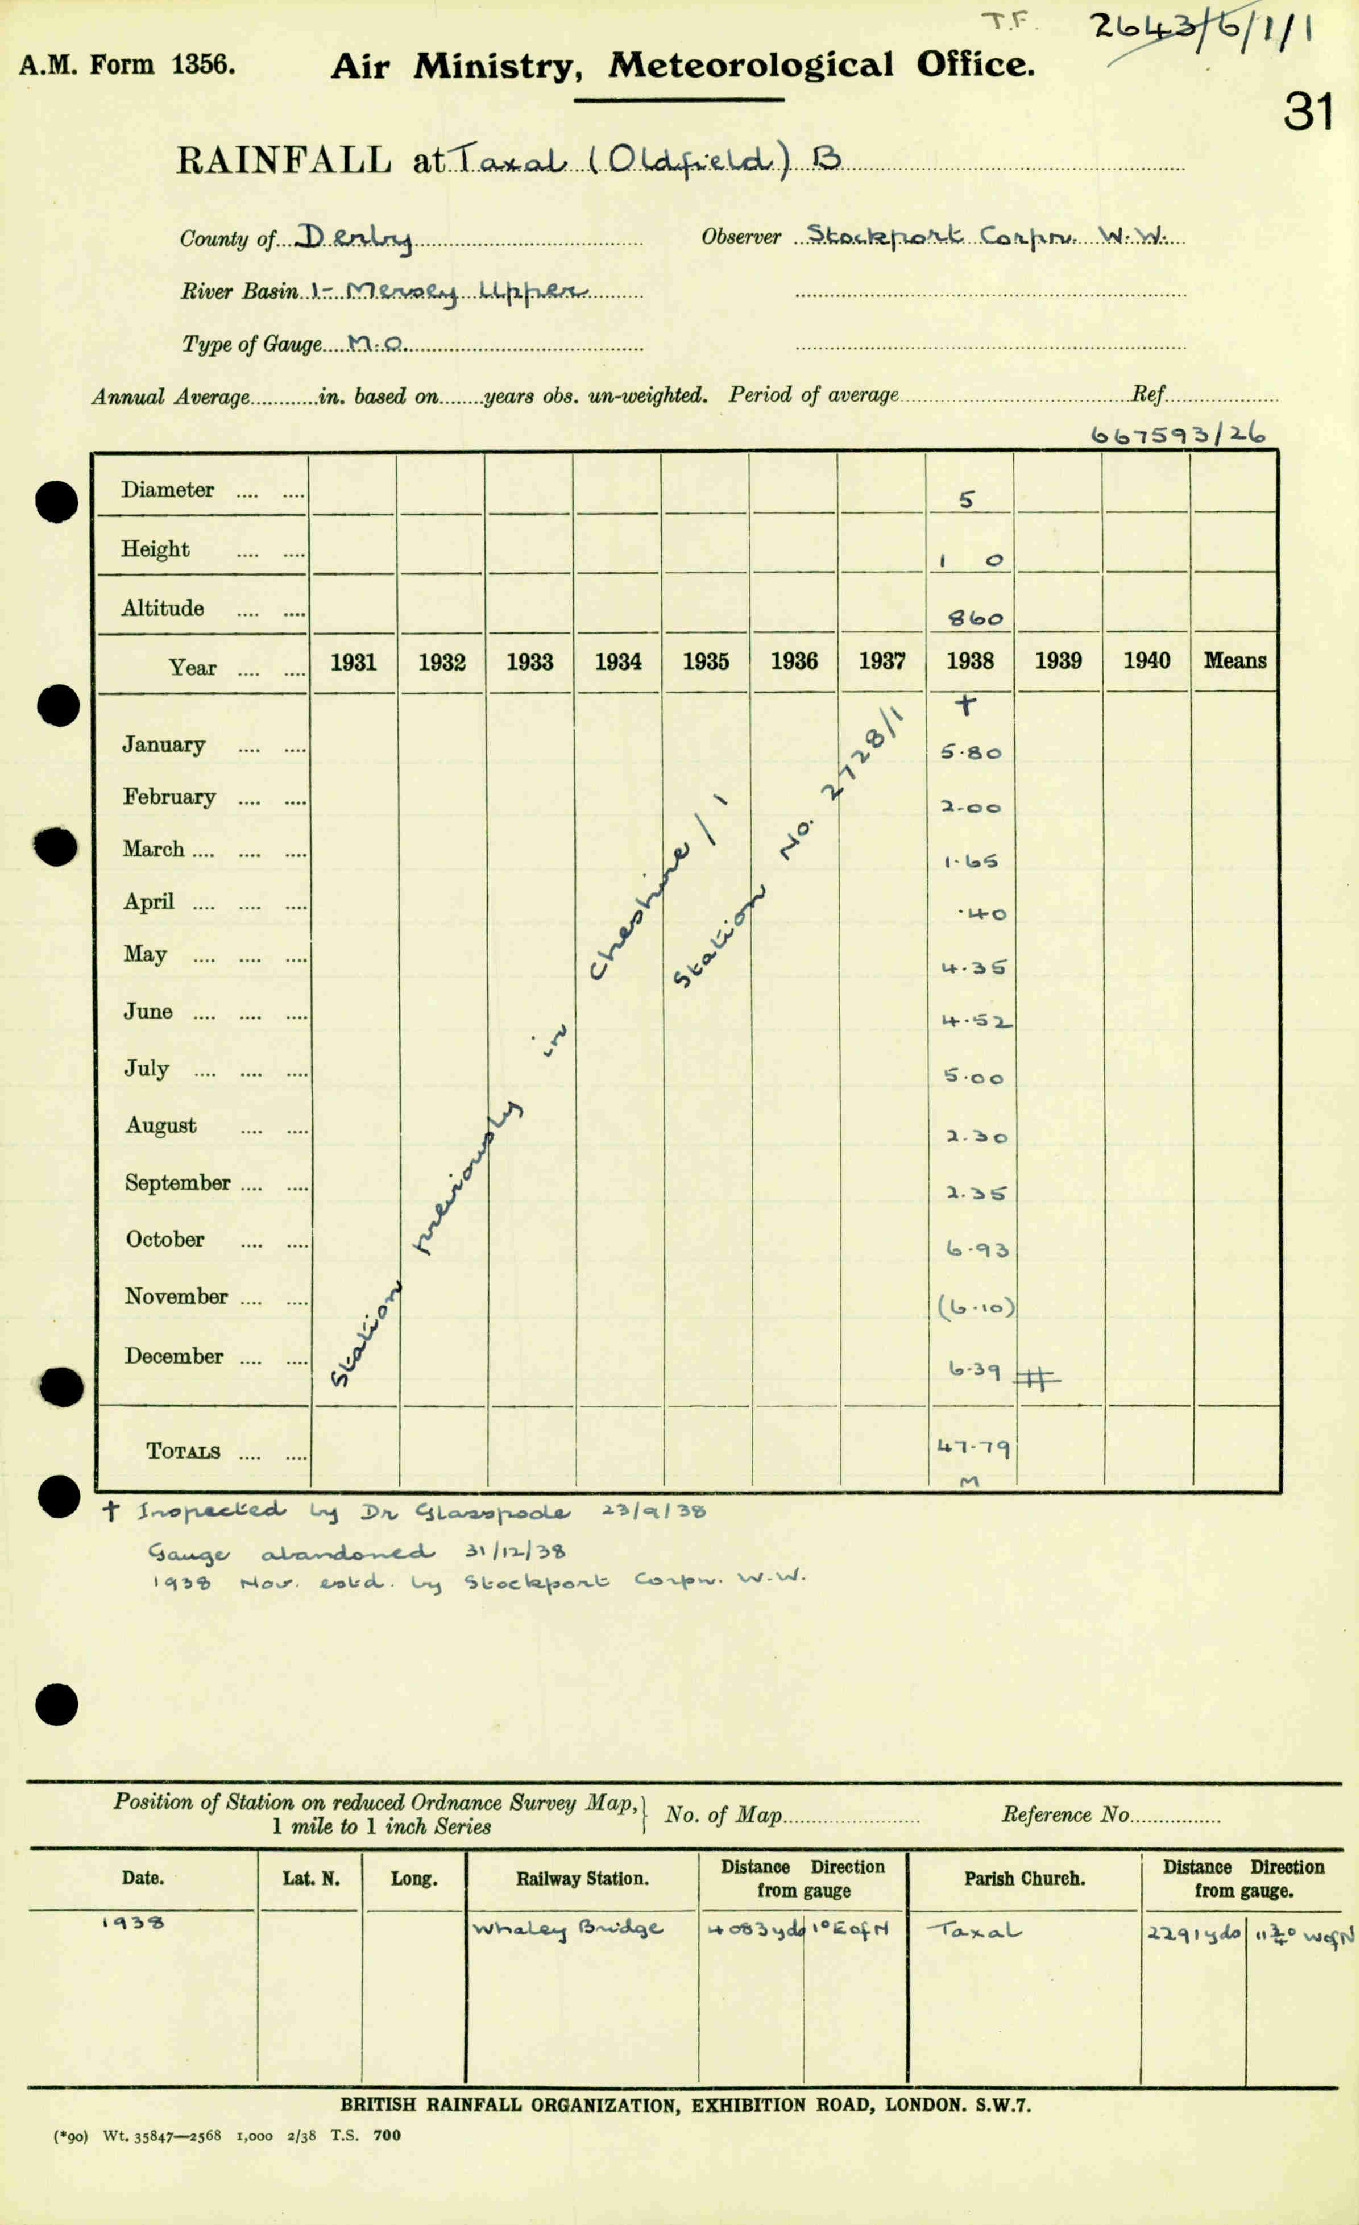 T.F. 2643/6/1/1
A.M. Form 1356. Air Ministry, Meteorological Office.
31
RAINFALL at Taxal (Oldfield) B
County of Derby Observer Stockport Corpn. W.W.
River Basin 1- Mersey Upper
Type of Gauge M.O.
Annual Average............in. based on.......years obs. un-weighted. Period of average Ref.
667593/26
Diameter .... .... 5
Height .... .... 1 0
Altitude .... .... 860
Year .... .... 1931 1932 1933 1934 1935 1936 1937 1938 1939 1940 Means
†
January .... .... 5.80
February .... .... 2.00
March .... .... .... 1.65
April .... .... .... .40
May .... .... .... 4.35
June .... .... .... 4.52
July .... .... .... 5.00
August .... .... 2.30
September .... .... 2.35
October .... .... 6.93
November .... .... (6.10)
December .... .... 6.39
Totals .... .... 47.79
M
Station previously in Cheshire / 1
Station No. 2728/1
† Inspected by Dr Glasspoole 23/9/38
Gauge abandoned 31/12/38
1938 Nov. estd. by Stockport Corpn. W.W.
Position of Station on reduced Ordnance Survey Map, } No. of Map Reference No.
1 mile to 1 inch Series
Date. Lat. N. Long. Railway Station. Distance Direction from gauge Parish Church. Distance Direction from gauge.
1938 Whaley Bridge 4083yds 1° E of N Taxal 2291yds 11¾° W of N
BRITISH RAINFALL ORGANIZATION, EXHIBITION ROAD, LONDON. S.W.7.
(*90) Wt. 35847—2568 1,000 2/38 T.S. 700